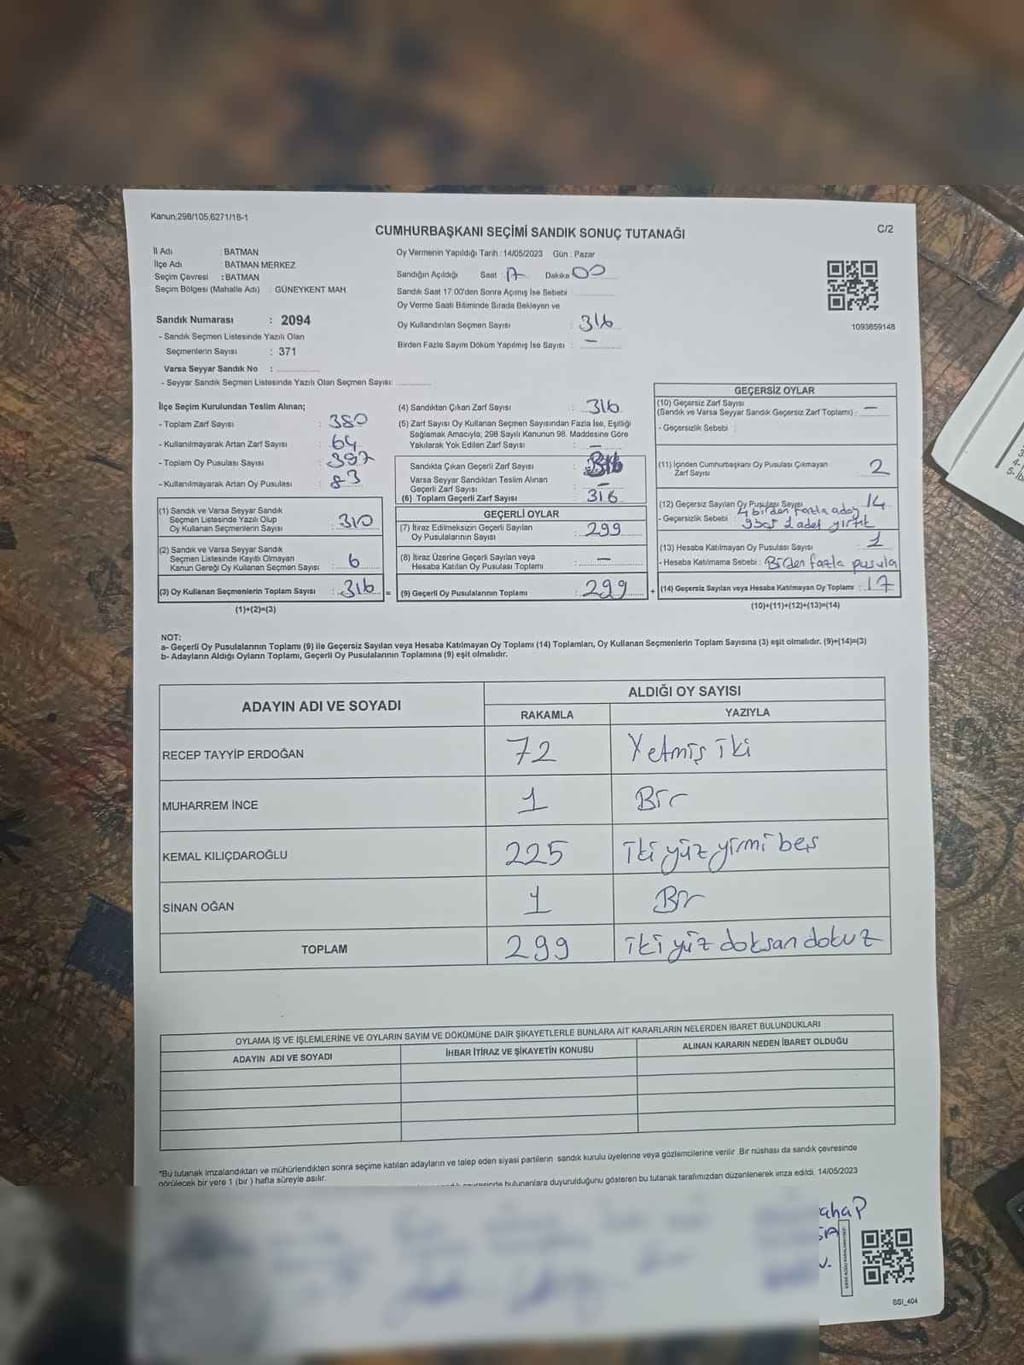 Kanun;298/105,6271/18-1
CUMHURBAŞKANI SEÇİMİ SANDIK SONUÇ TUTANAĞI
C/2
İl Adı : BATMAN
İlçe Adı : BATMAN MERKEZ
Seçim Çevresi : BATMAN
Seçim Bölgesi (Mahalle Adı) : GÜNEYKENT MAH.
Sandık Numarası : 2094
- Sandık Seçmen Listesinde Yazılı Olan
Seçmenlerin Sayısı : 371
Varsa Seyyar Sandık No :
- Seyyar Sandık Seçmen Listesinde Yazılı Olan Seçmen Sayısı:
Oy Vermenin Yapıldığı Tarih : 14/05/2023 Gün : Pazar
Sandığın Açıldığı Saat 17 Dakika 00
Sandık Saat 17.00'den Sonra Açılmış İse Sebebi
Oy Verme Saati Bitiminde Sırada Bekleyen ve
Oy Kullandırılan Seçmen Sayısı : 316
Birden Fazla Sayım Döküm Yapılmış İse Sayısı : —
1093859148
İlçe Seçim Kurulundan Teslim Alınan;
- Toplam Zarf Sayısı : 380
- Kullanılmayarak Artan Zarf Sayısı : 64
- Toplam Oy Pusulası Sayısı : 397
- Kullanılmayarak Artan Oy Pusulası : 83
(1) Sandık ve Varsa Seyyar Sandık
Seçmen Listesinde Yazılı Olup
Oy Kullanan Seçmenlerin Sayısı : 310
(2) Sandık ve Varsa Seyyar Sandık
Seçmen Listesinde Kayıtlı Olmayan
Kanun Gereği Oy Kullanan Seçmen Sayısı : 6
(3) Oy Kullanan Seçmenlerin Toplam Sayısı : 316 =
(1)+(2)=(3)
(4) Sandıktan Çıkan Zarf Sayısı : 316
(5) Zarf Sayısı Oy Kullanan Seçmen Sayısından Fazla İse, Eşitliği
Sağlamak Amacıyla; 298 Sayılı Kanunun 98. Maddesine Göre
Yakılarak Yok Edilen Zarf Sayısı : —
Sandıkta Çıkan Geçerli Zarf Sayısı : 316
Varsa Seyyar Sandıktan Teslim Alınan
Geçerli Zarf Sayısı : —
(6) Toplam Geçerli Zarf Sayısı : 316
GEÇERLİ OYLAR
(7) İtiraz Edilmeksizin Geçerli Sayılan
Oy Pusulasının Sayısı : 299
(8) İtiraz Üzerine Geçerli Sayılan veya
Hesaba Katılan Oy Pusulası Toplamı : —
(9) Geçerli Oy Pusulalarının Toplamı : 299 +
GEÇERSİZ OYLAR
(10) Geçersiz Zarf Sayısı
(Sandık ve Varsa Seyyar Sandık Geçersiz Zarf Toplamı) : —
- Geçersizlik Sebebi :
(11) İçinden Cumhurbaşkanı Oy Pusulası Çıkmayan
Zarf Sayısı : 2
(12) Geçersiz Sayılan Oy Pusulası Sayısı : 14
- Geçersizlik Sebebi : 4 birden fazla aday
9 boş 1 adet yırtık
(13) Hesaba Katılmayan Oy Pusulası Sayısı : 1
- Hesaba Katılmama Sebebi : Birden fazla pusula
(14) Geçersiz Sayılan veya Hesaba Katılmayan Oy Toplamı : 17
(10)+(11)+(12)+(13)=(14)
NOT:
a- Geçerli Oy Pusulalarının Toplamı (9) ile Geçersiz Sayılan veya Hesaba Katılmayan Oy Toplamı (14) Toplamları, Oy Kullanan Seçmenlerin Toplam Sayısına (3) eşit olmalıdır. (9)+(14)=(3)
b- Adayların Aldığı Oyların Toplamı, Geçerli Oy Pusulalarının Toplamına (9) eşit olmalıdır.
ADAYIN ADI VE SOYADI ALDIĞI OY SAYISI
RAKAMLA YAZIYLA
RECEP TAYYİP ERDOĞAN 72 Yetmiş iki
MUHARREM İNCE 1 Bir
KEMAL KILIÇDAROĞLU 225 iki yüz yirmi beş
SİNAN OĞAN 1 Bir
TOPLAM 299 iki yüz doksan dokuz
OYLAMA İŞ VE İŞLEMLERİNE VE OYLARIN SAYIM VE DÖKÜMÜNE DAİR ŞİKAYETLERLE BUNLARA AİT KARARLARIN NELERDEN İBARET BULUNDUKLARI
ADAYIN ADI VE SOYADI İHBAR İTİRAZ VE ŞİKAYETİN KONUSU ALINAN KARARIN NEDEN İBARET OLDUĞU
*Bu tutanak imzalandıktan ve mühürlendikten sonra seçime katılan adayların ve talep eden siyasi partilerin sandık kurulu üyelerine veya gözlemcilerine verilir. Bir nüshası da sandık çevresinde
görülecek bir yere 1 (bir) hafta süreyle asılır.
bulunanlara duyurulduğunu gösteren bu tutanak tarafımızdan düzenlenerek imza edildi. 14/05/2023
SSİ_404